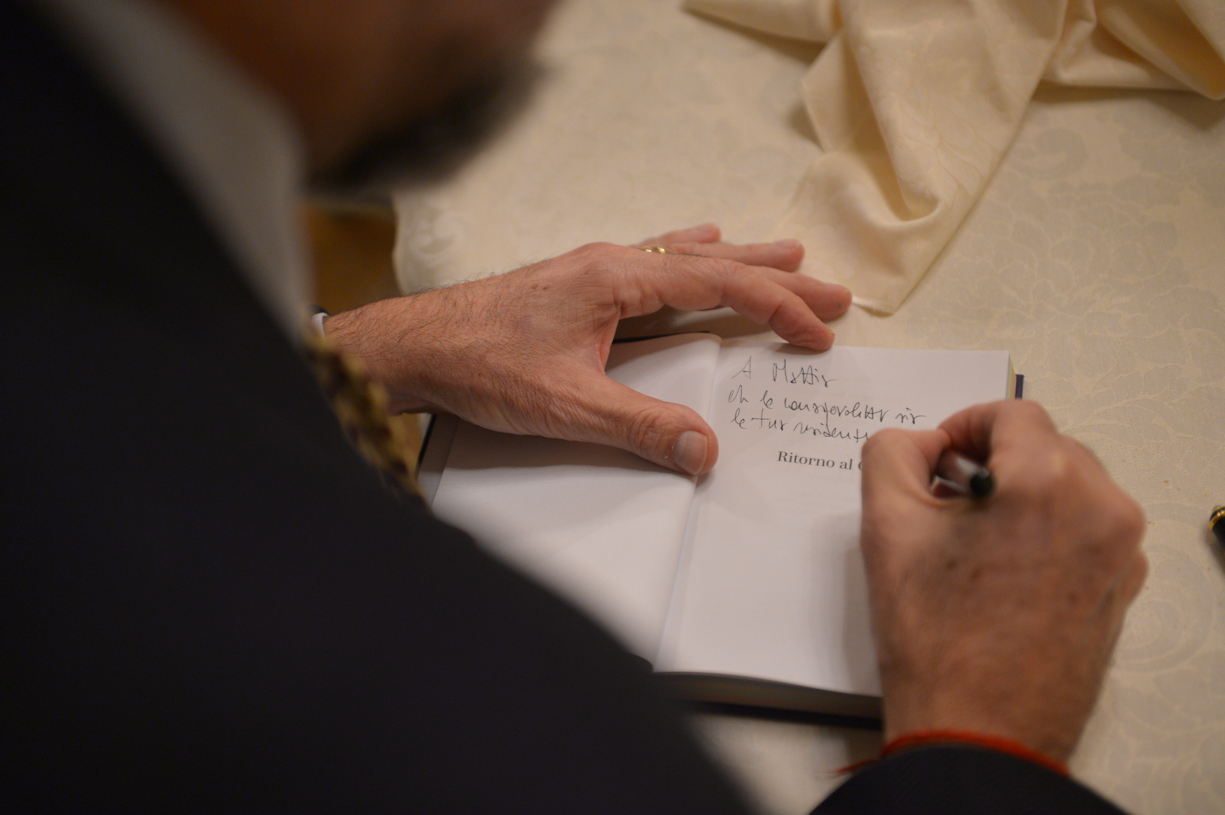 A Mattia
che la consapevolezza sia
la tua
Ritorno al